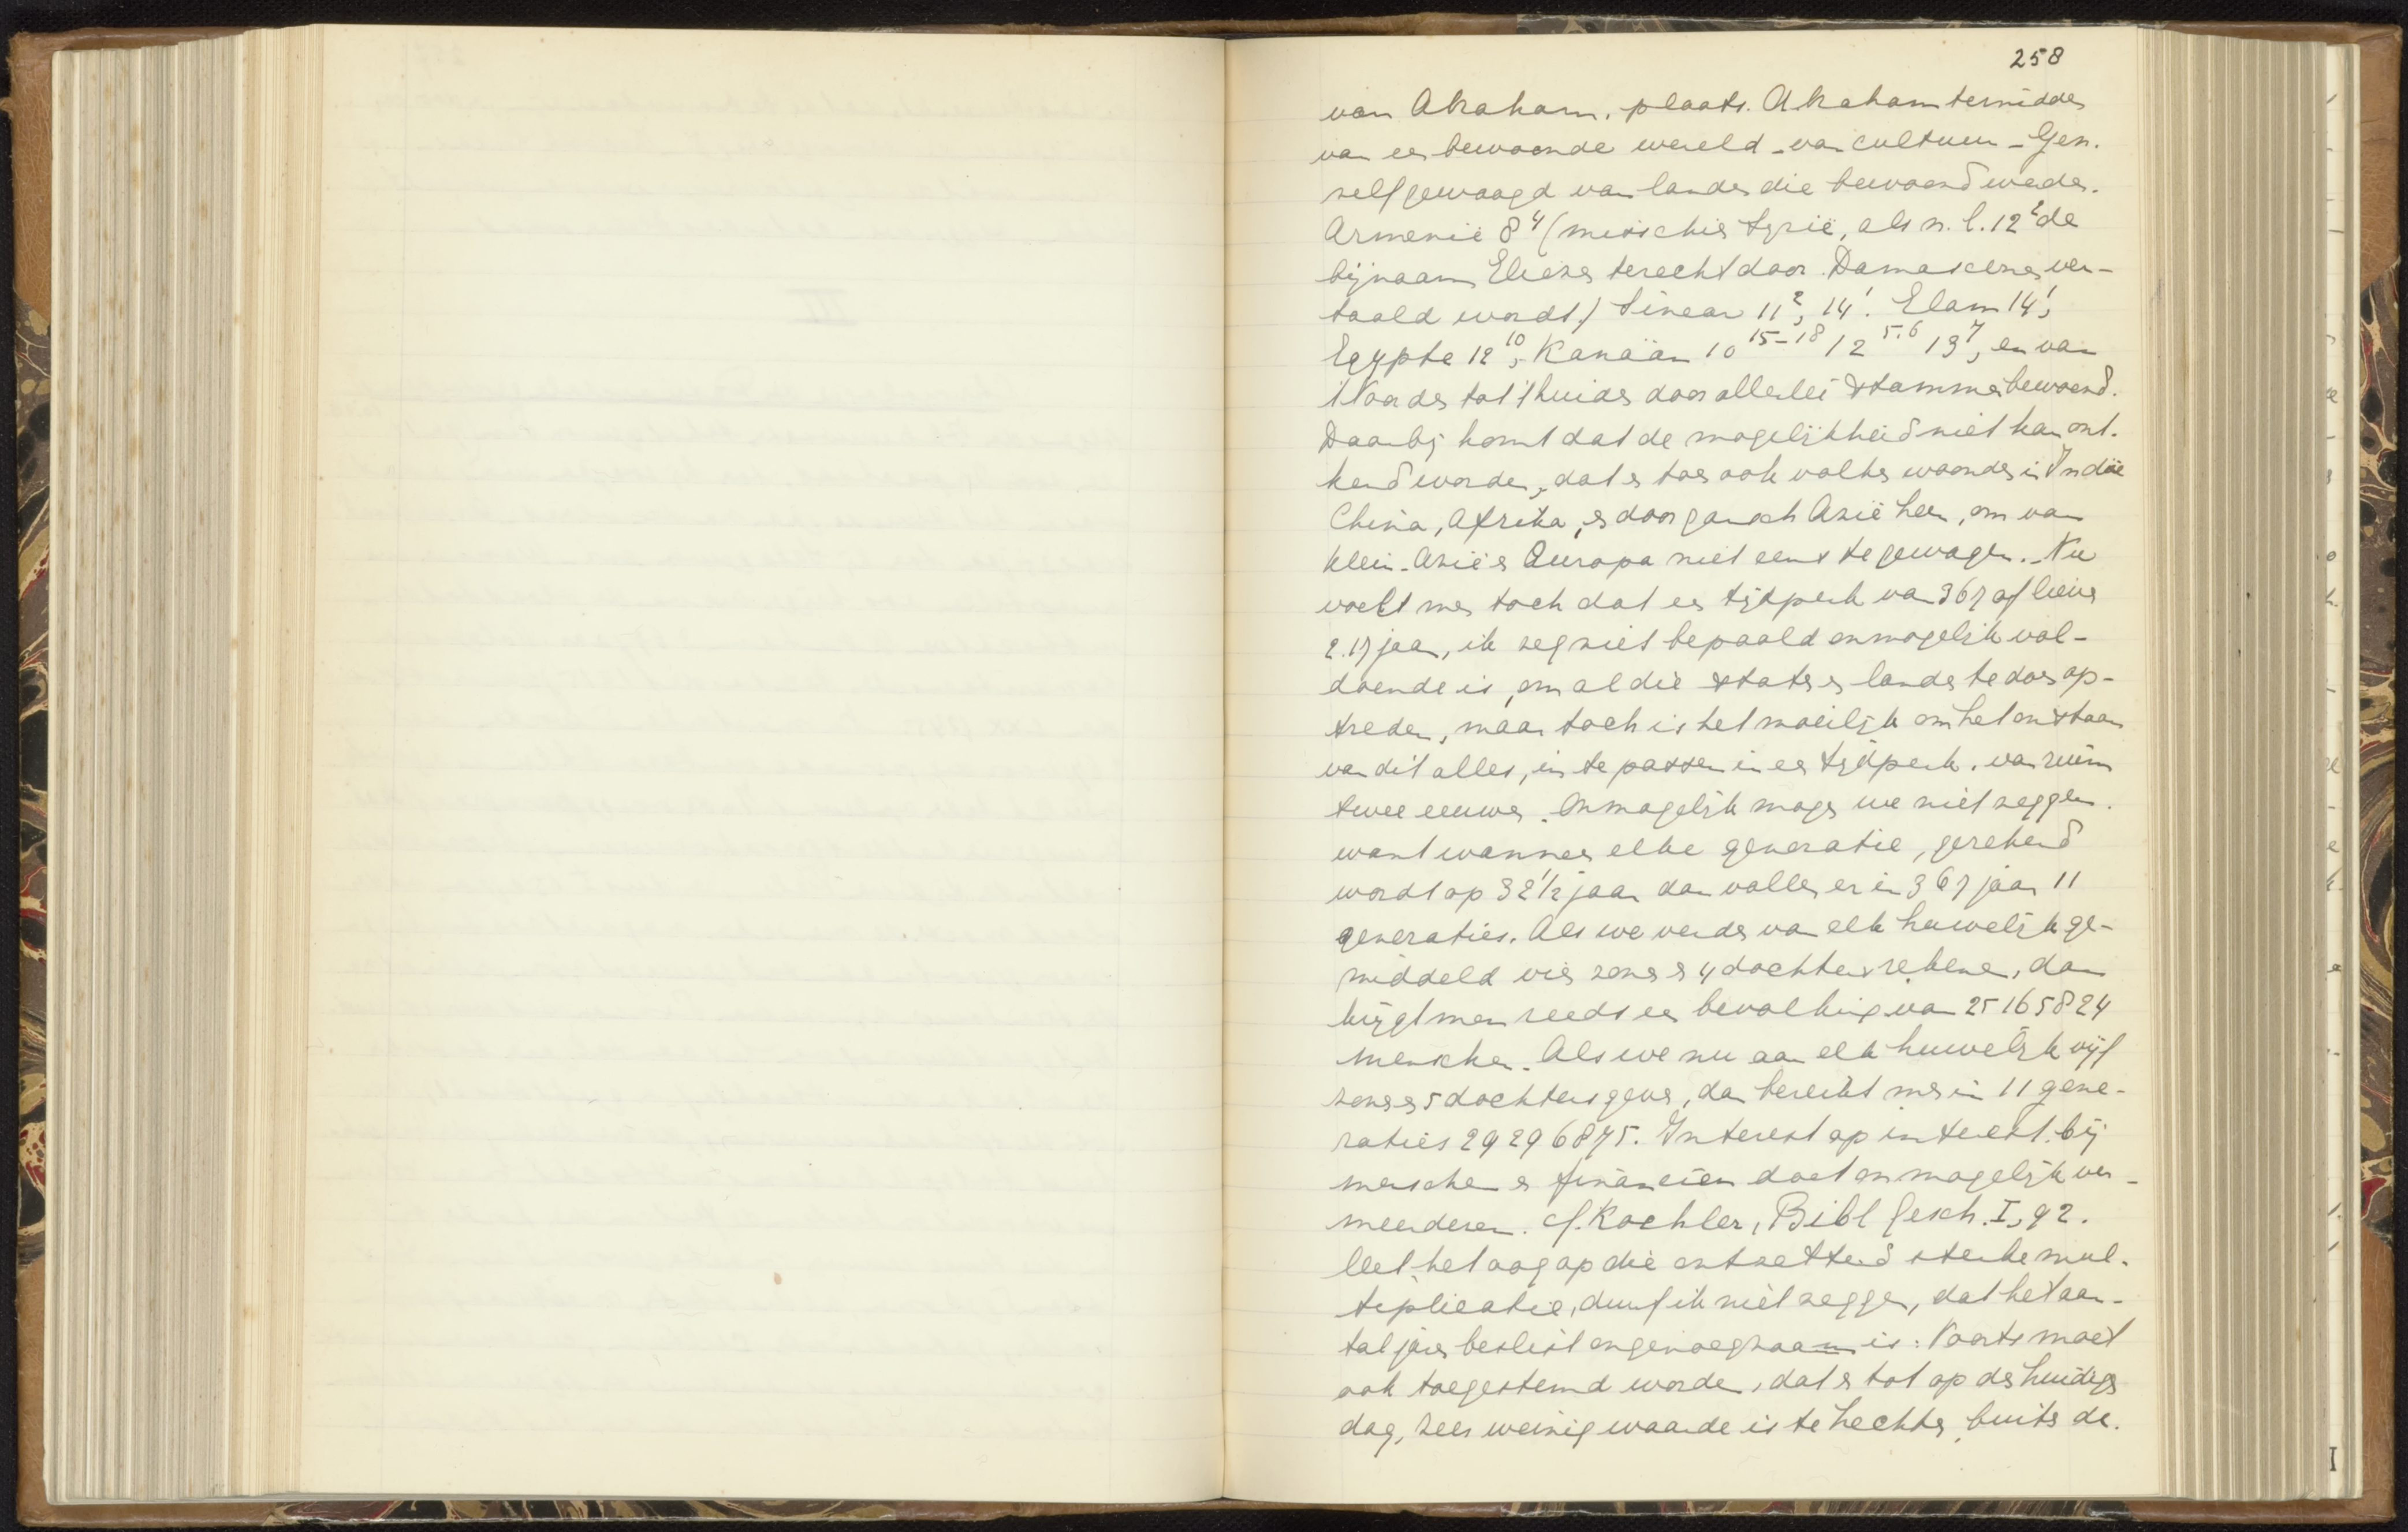 258
van Abraham, plaats. Abraham temidden
van een bewoonde wereld - van cultuur - Gen.
zelf gewaagd van landen die bewoond werden.
Armenië 8⁴ (misschien Syrië, als n. l. 12² de
bijnaam Eliezer terecht door Damascener ver-
taald wordt) Sinear 11², 14¹. Elam 14¹,
Egypte 12¹⁰, Kanaän 10¹⁵⁻¹⁸ 12⁵·⁶ 13⁷, en van
't Noorden tot 't Zuiden door allerlei stammen bewoond.
Daarbij komt dat de mogelijkheid niet kan ont-
kend worden, dat er toen ook volken woonden in Indië
China, Afrika, en door gansch Azië heen, om van
Klein-Azië en Europa niet eens te gewagen. Nu
voelt men toch dat een tijdperk van 367 of liever
217 jaar, ik zeg niet bepaald onmogelijk vol-
doende is, om al die staten en landen te doen op-
treden, maar toch is het moeilijk om het ontstaan
van dit alles, in te passen in een tijdperk van ruim
twee eeuwen. Onmogelijk mogen we niet zeggen.
want wanneer elke generatie, gerekend
wordt op 32½ jaar dan vallen er in 367 jaar 11
generaties. Als we verder van elk huwelijk ge-
middeld vier zonen en 4 dochters rekenen, dan
krijgt men reeds een bevolking van 25165824
menschen. Als we nu aan elk huwelijk vijf
zonen en 5 dochters geven, dan bereikt men in 11 gene-
raties 29296875. Interest op interest bij
menschen en financiën doet onmogelijk ver-
meerderen. cf. Koehler, Bibl Gesch. I, 92.
Met het oog op die ontzettend sterke mul-
tiplicatie, durf ik niet zeggen, dat het aan-
tal jaren beslist ongenoegzaam is: Voorts moet
ook toegestemd worden, dat er tot op den huidigen
dag, zeer weinig waarde is te hechten, buiten de.